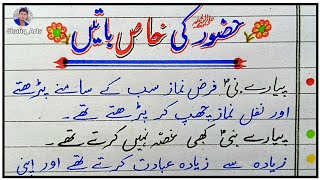 Shafiq_Arts
حضور ﷺ کی خاص باتیں
پیارے نبیؐ فرض نماز سب کے سامنے پڑھتے
اور نفل نماز چھپ کر پڑھتے تھے۔
پیارے نبیؐ کبھی غصّہ نہیں کرتے تھے۔
زیادہ سے زیادہ عبادت کرتے تھے اور اپنی